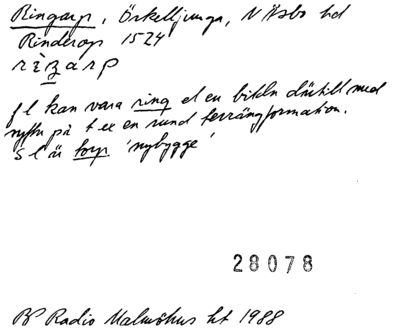 Ringarp, Örkelljunga, N Åsbo hd
Rinderop 1524
fl kan vara ring el en bildn därtill med
syftn på t ex en rund terrängformation.
sl är torp 'nybygge'
28078
BP Radio Malmöhus ht 1988